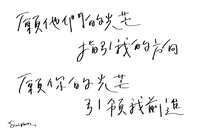 願他們的光芒
指引我的方向
願你的光芒
引領我前進